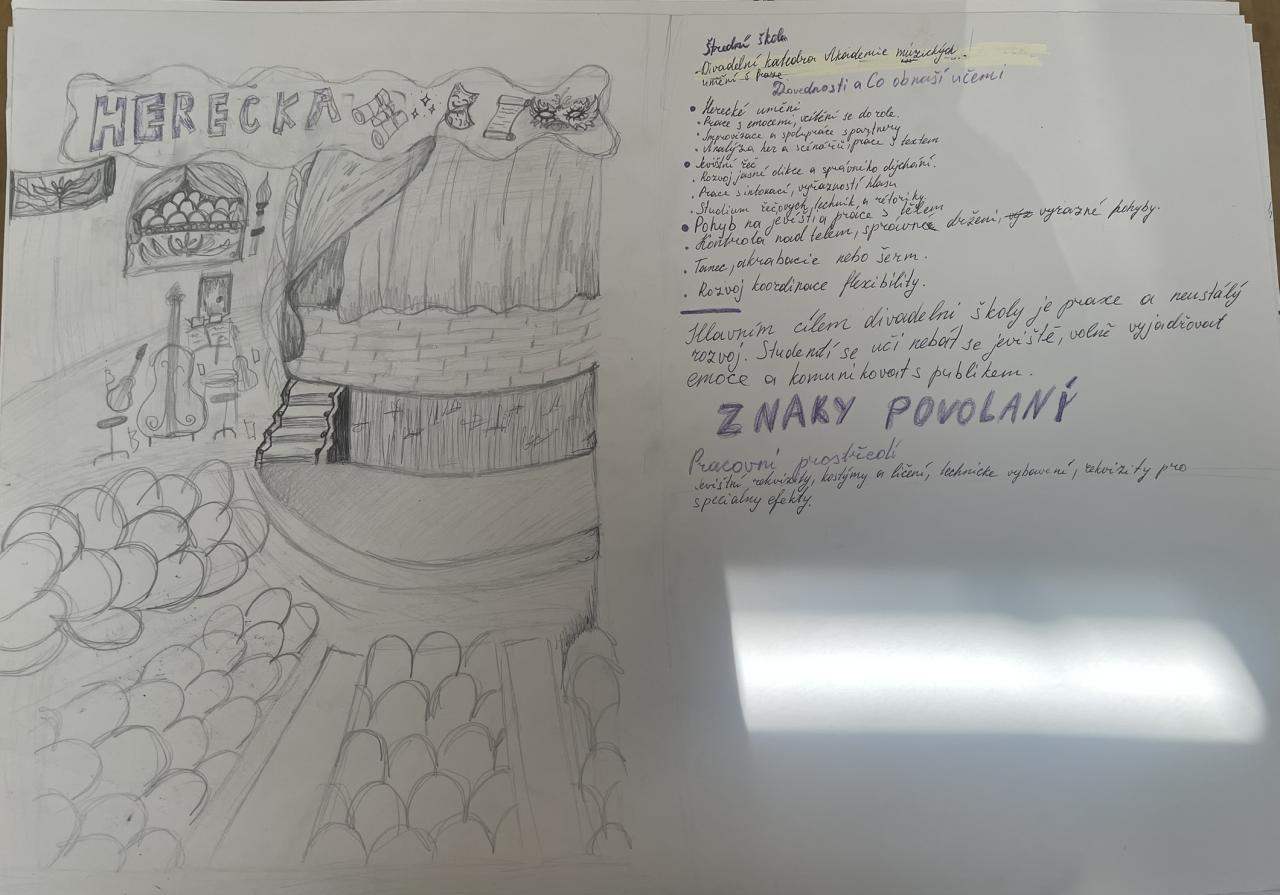 HEREČKA
Střední škola
- Divadelní katedra Akademie múzických
umění s Praze
Dovednosti a Co obnaší učemi
• Herecké umění
• Prace s emocemi, vcítění se do role.
• Improvizace a spolupráce s partnery
• Analýza her a scénářů, práce s textem
• Jevištní řeč
• Rozvoj jasné dikce a správního dýchání.
• Prace s intonací, výrazností hlasu
• Studium řečových technik, a rétoriky.
• Pohyb na jevišti a práce s tělem
• Kontrola nad tělem, správnce držení, výz vyrazné pohyby.
• Tanec, akrabacie nebo šerm.
• Rozvoj koordinace flexibility.
Hlavním cílem divadelní školy je praxe a neustálý
rozvoj. Studentí se učí nebát se jeviště, volně vyjadřovat
emoce a komunikovat s publikem.
ZNAKY POVOLANÝ
Pracovní prostředí
Jevištní rekvizity, kostýmy a líčení, technicke vybavení, rekvizity pro
specialny efekty.